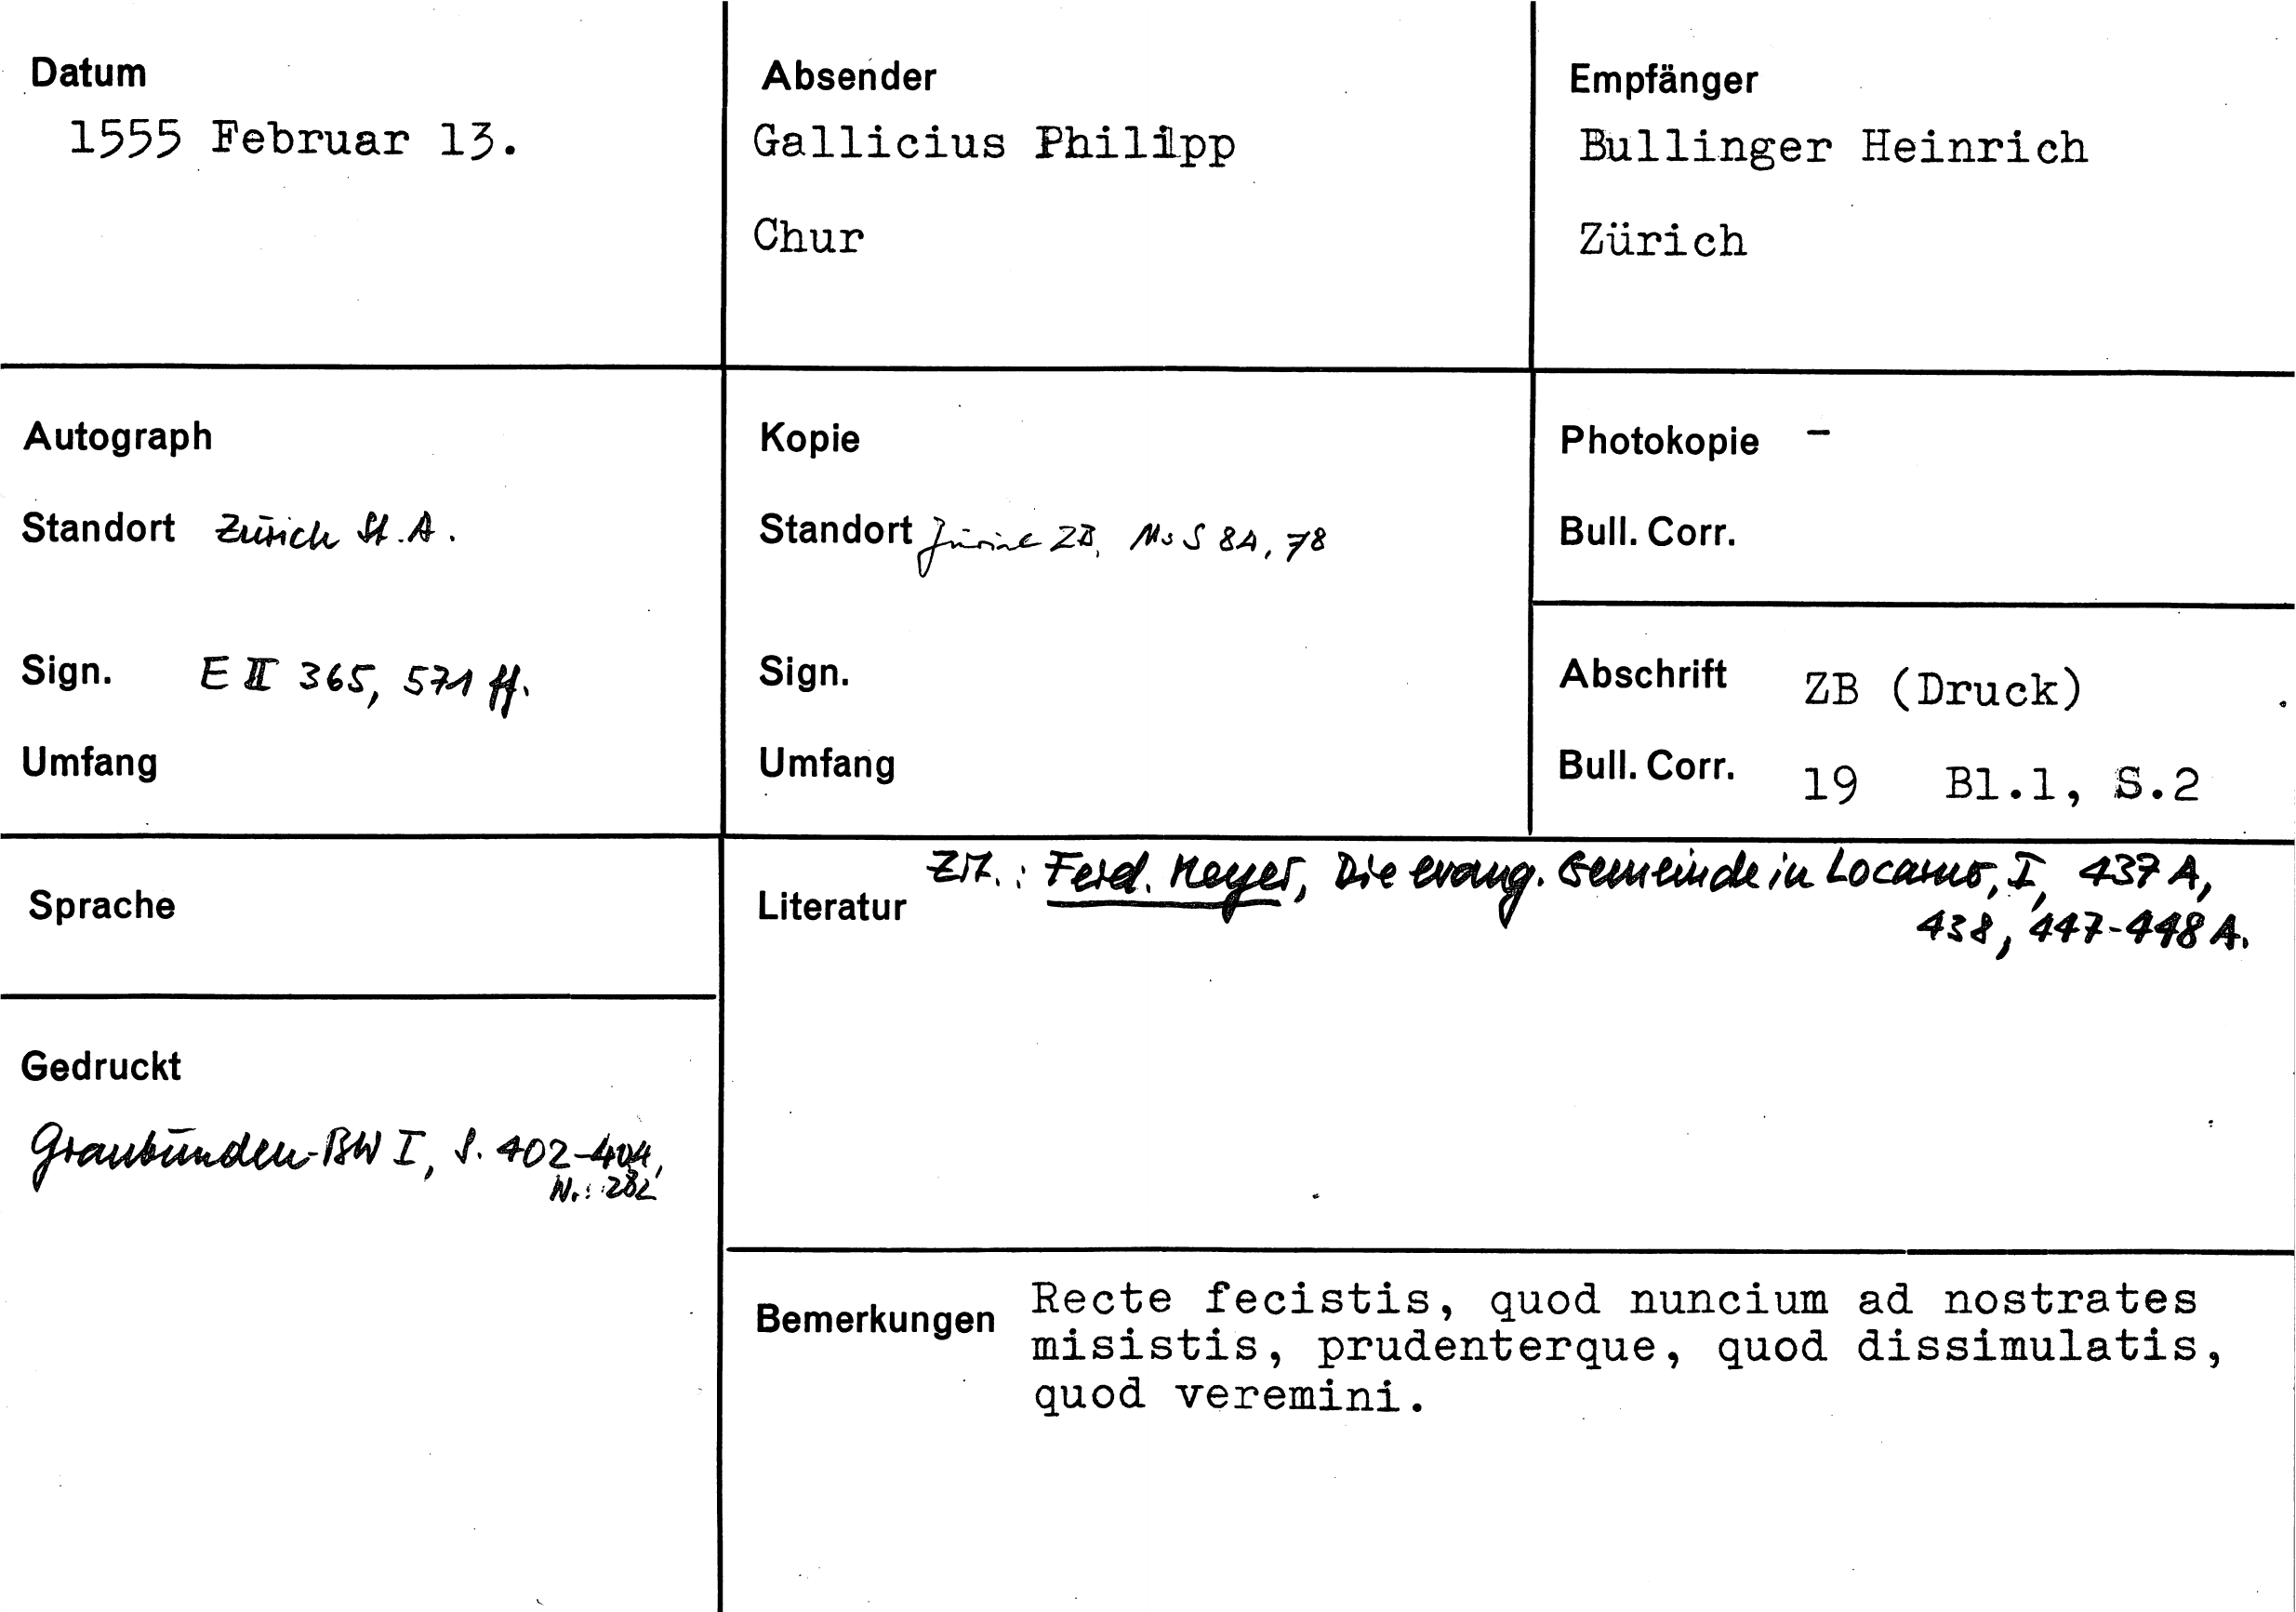 Datum
1555 Februar 13.
Absender
Gallicius Philipp
Chur
Empfänger
Bullinger Heinrich
Zürich
Autograph
Standort Zürich St.A.
Sign. E II 365, 571 ff.
Umfang
Kopie
Standort Zürich ZB, Ms S 84, 78
Sign.
Umfang
Photokopie -
Bull. Corr.
Abschrift ZB (Druck)
Bull. Corr. 19 Bl.1, S.2
Sprache
Gedruckt
Graubünden-BW I, S. 402-404,
Nr.: 282
Literatur Zit.: Ferd. Meyer, Die evang. Gemeinde in Locarno, I, 437 A,
438, 447-448 A.
Bemerkungen Recte fecistis, quod nuncium ad nostrates
misistis, prudenterque, quod dissimulatis,
quod veremini.